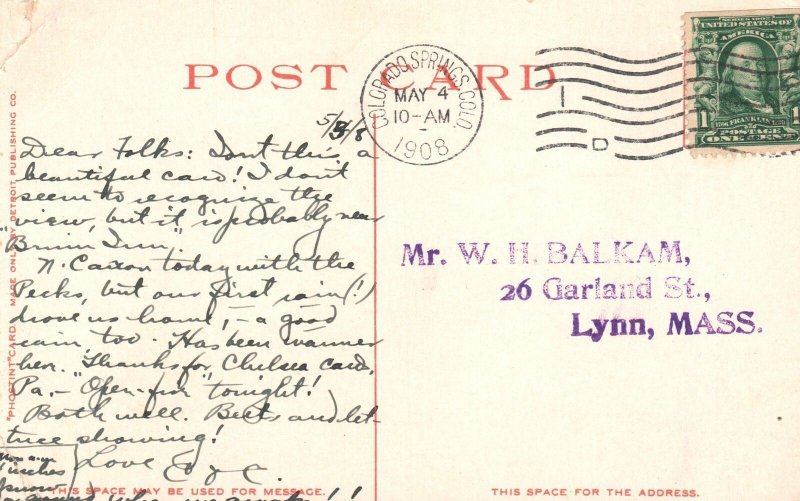 POST CARD
COLORADO SPRINGS, COLO.
MAY 4
10-AM
1908
SERIES 1902
UNITED STATES OF
AMERICA
1 1
FRANKLIN
POSTAGE
ONE
D
"PHOSTINT" CARD MADE ONLY BY DETROIT PUBLISHING CO.
5/3/8
Dear Folks: Isnt this a
beautiful card! I don't
seem to recognize the
view, but it is probably near
"Bruin Inn".
N. Cañon today with the
Pecks, but our first rain (!)
drove us home, - a good
rain, too. Has been warmer
here. Thanks for Chelsea card,
Pa. - "Open-fire" tonight!
Both well. Beets and let-
tuce showing!
Love
inches
snow
THIS SPACE MAY BE USED FOR MESSAGE.
Mr. W. H. BALKAM,
26 Garland St.,
Lynn, MASS.
THIS SPACE FOR THE ADDRESS.